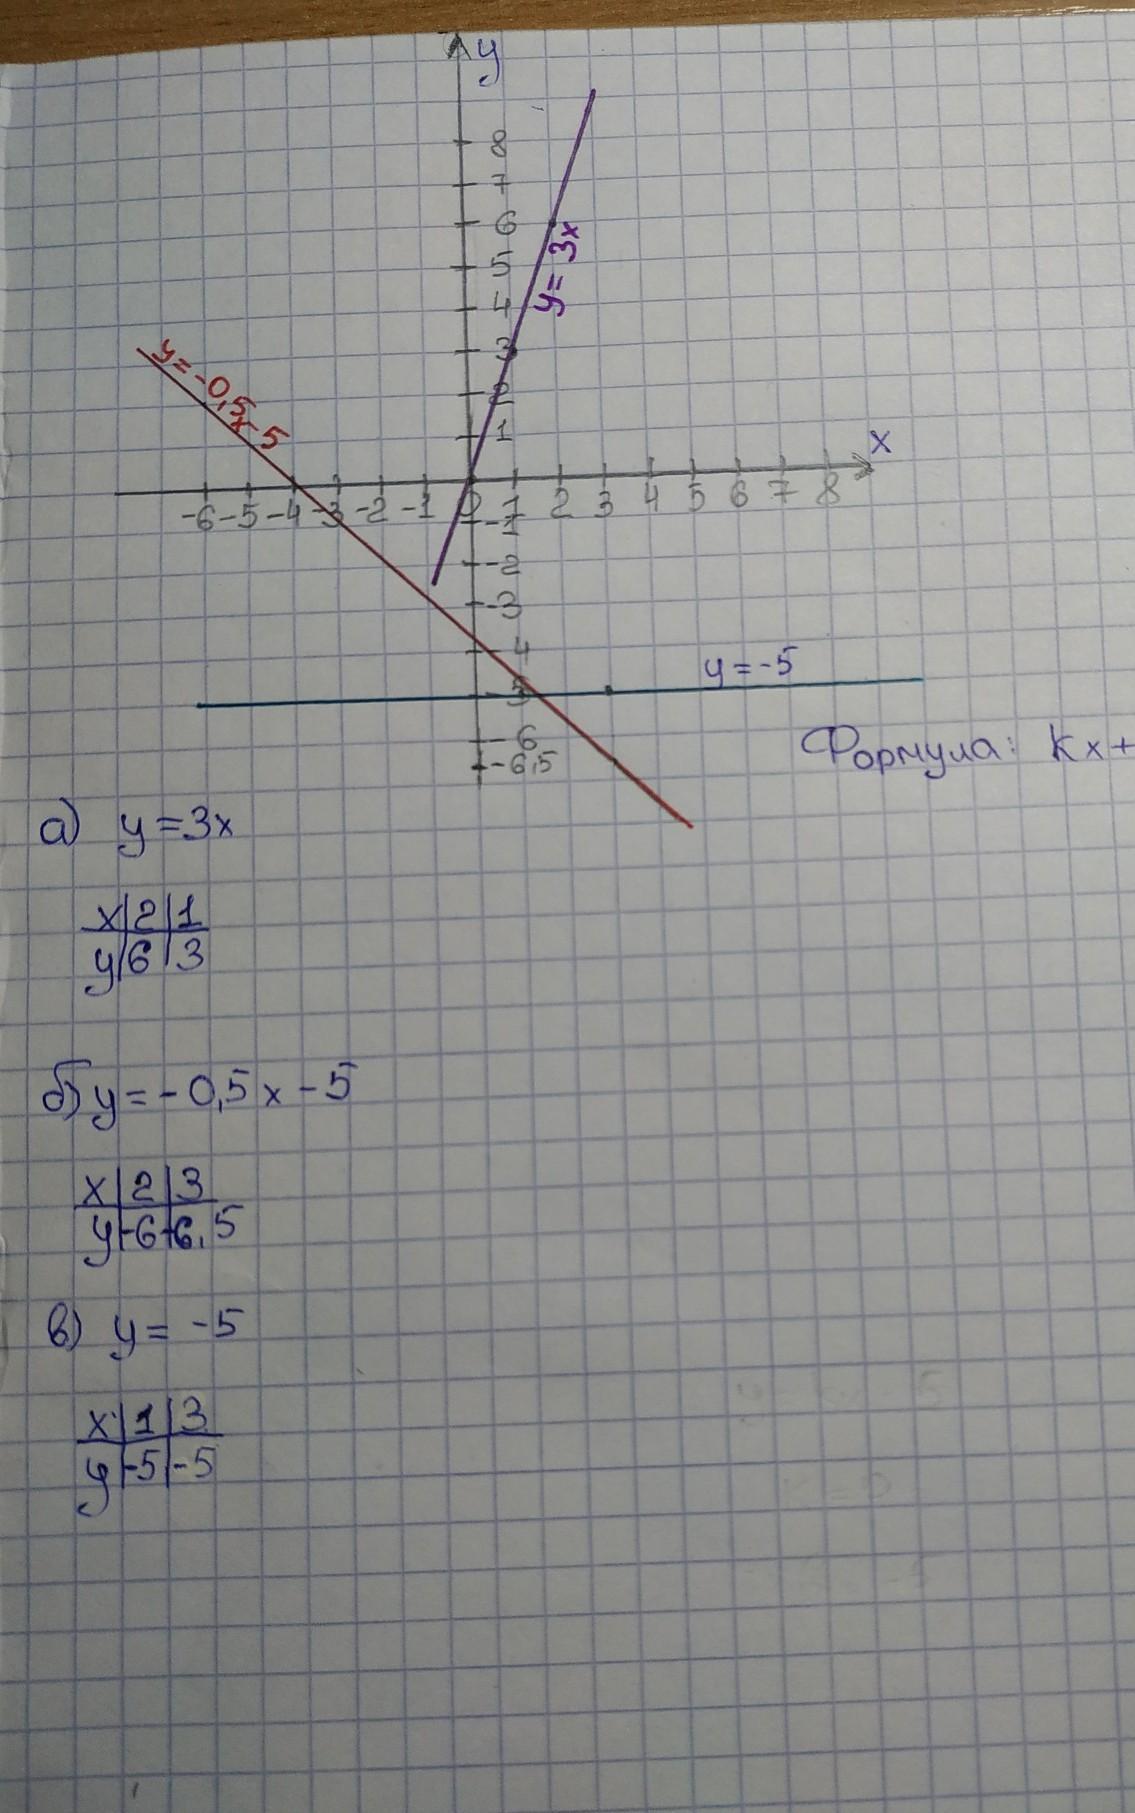 y
8
7
6
5
4
3
2
1
y = 3x
y = -0,5x-5
x
-6 -5 -4 -3 -2 -1 0 1 2 3 4 5 6 7 8
-1
-2
-3
-4
-5
y = -5
-6
-6,5
Формула: kx+
а) y = 3x
x 2 1
y 6 3
б) y = -0,5x - 5
x 2 3
y -6 -6,5
в) y = -5
x 1 3
y -5 -5